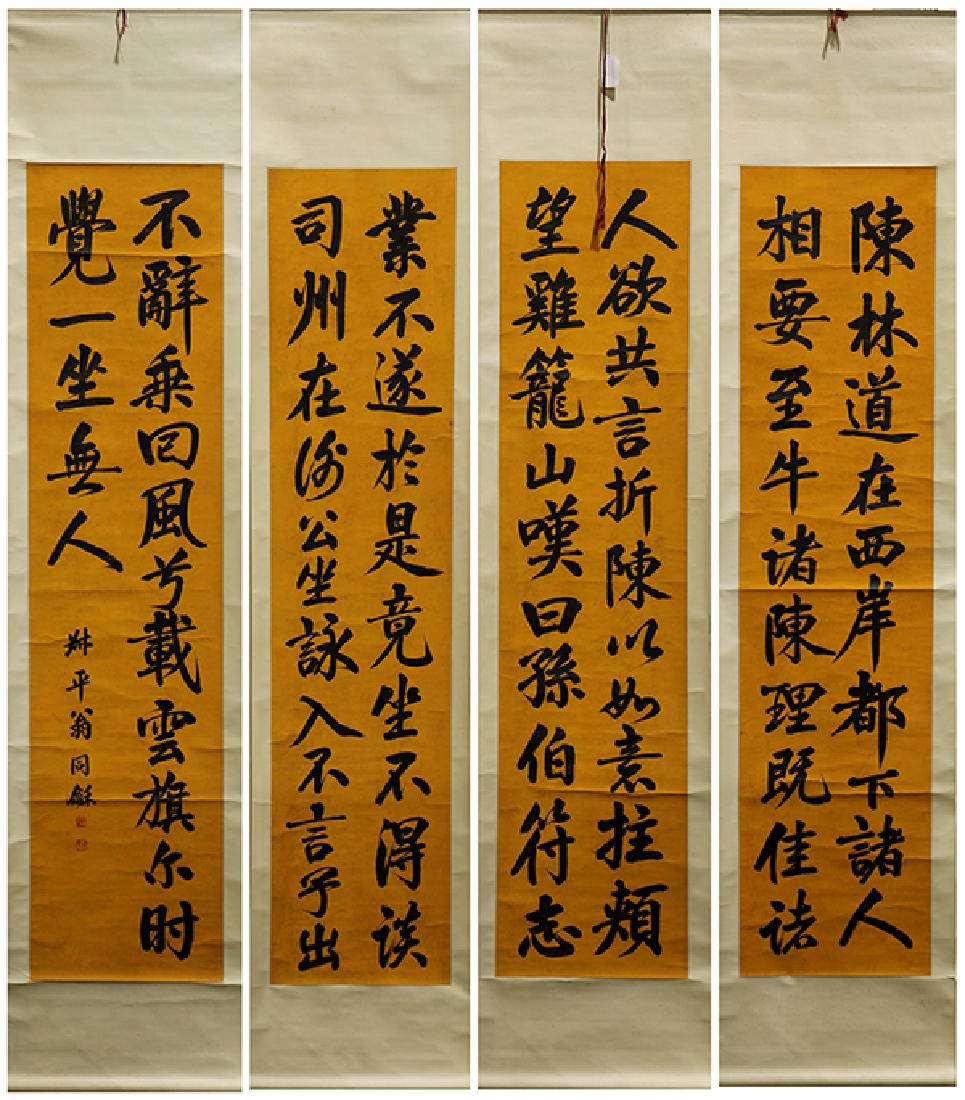 陳林道在西岸都下諸人
相要至牛诸陳理既佳诸
人欲共言折陳以如意拄頬
望雞籠山嘆曰孫伯符志
業不遂於是竟坐不得談
司州在谢公坐詠入不言予出
不辭乘回風兮載雲旗尔时
覺一坐無人
叔平翁同龢